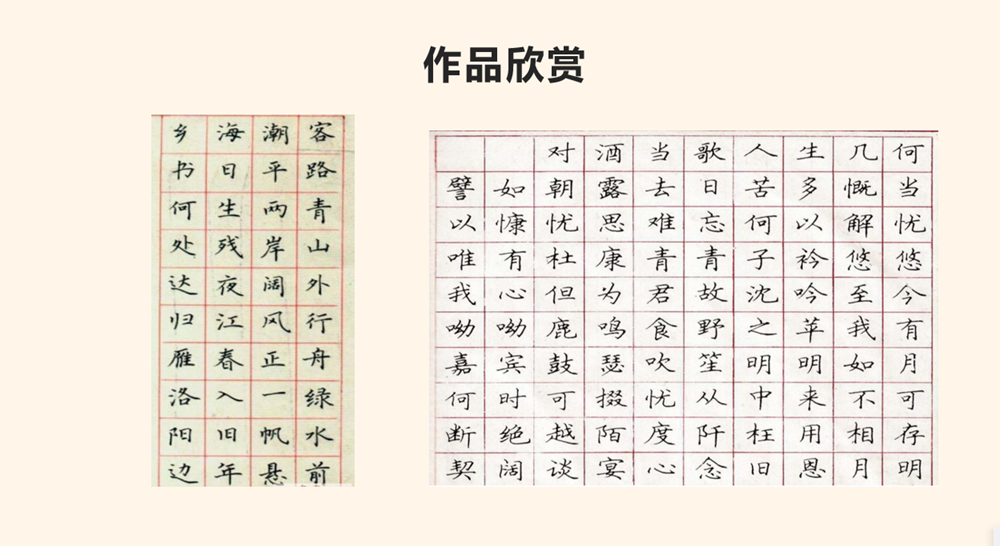 作品欣赏
客路青山外行舟绿水前
潮平两岸阔风正一帆悬
海日生残夜江春入旧年
乡书何处达归雁洛阳边
对酒当歌人生几何
譬如朝露去日苦多慨当
以慷忧思难忘何以解忧
唯有杜康青青子衿悠悠
我心但为君故沈吟至今
呦呦鹿鸣食野之苹我有
嘉宾鼓瑟吹笙明明如月
何时可掇忧从中来不可
断绝越陌度阡枉用相存
契阔谈宴心念旧恩月明